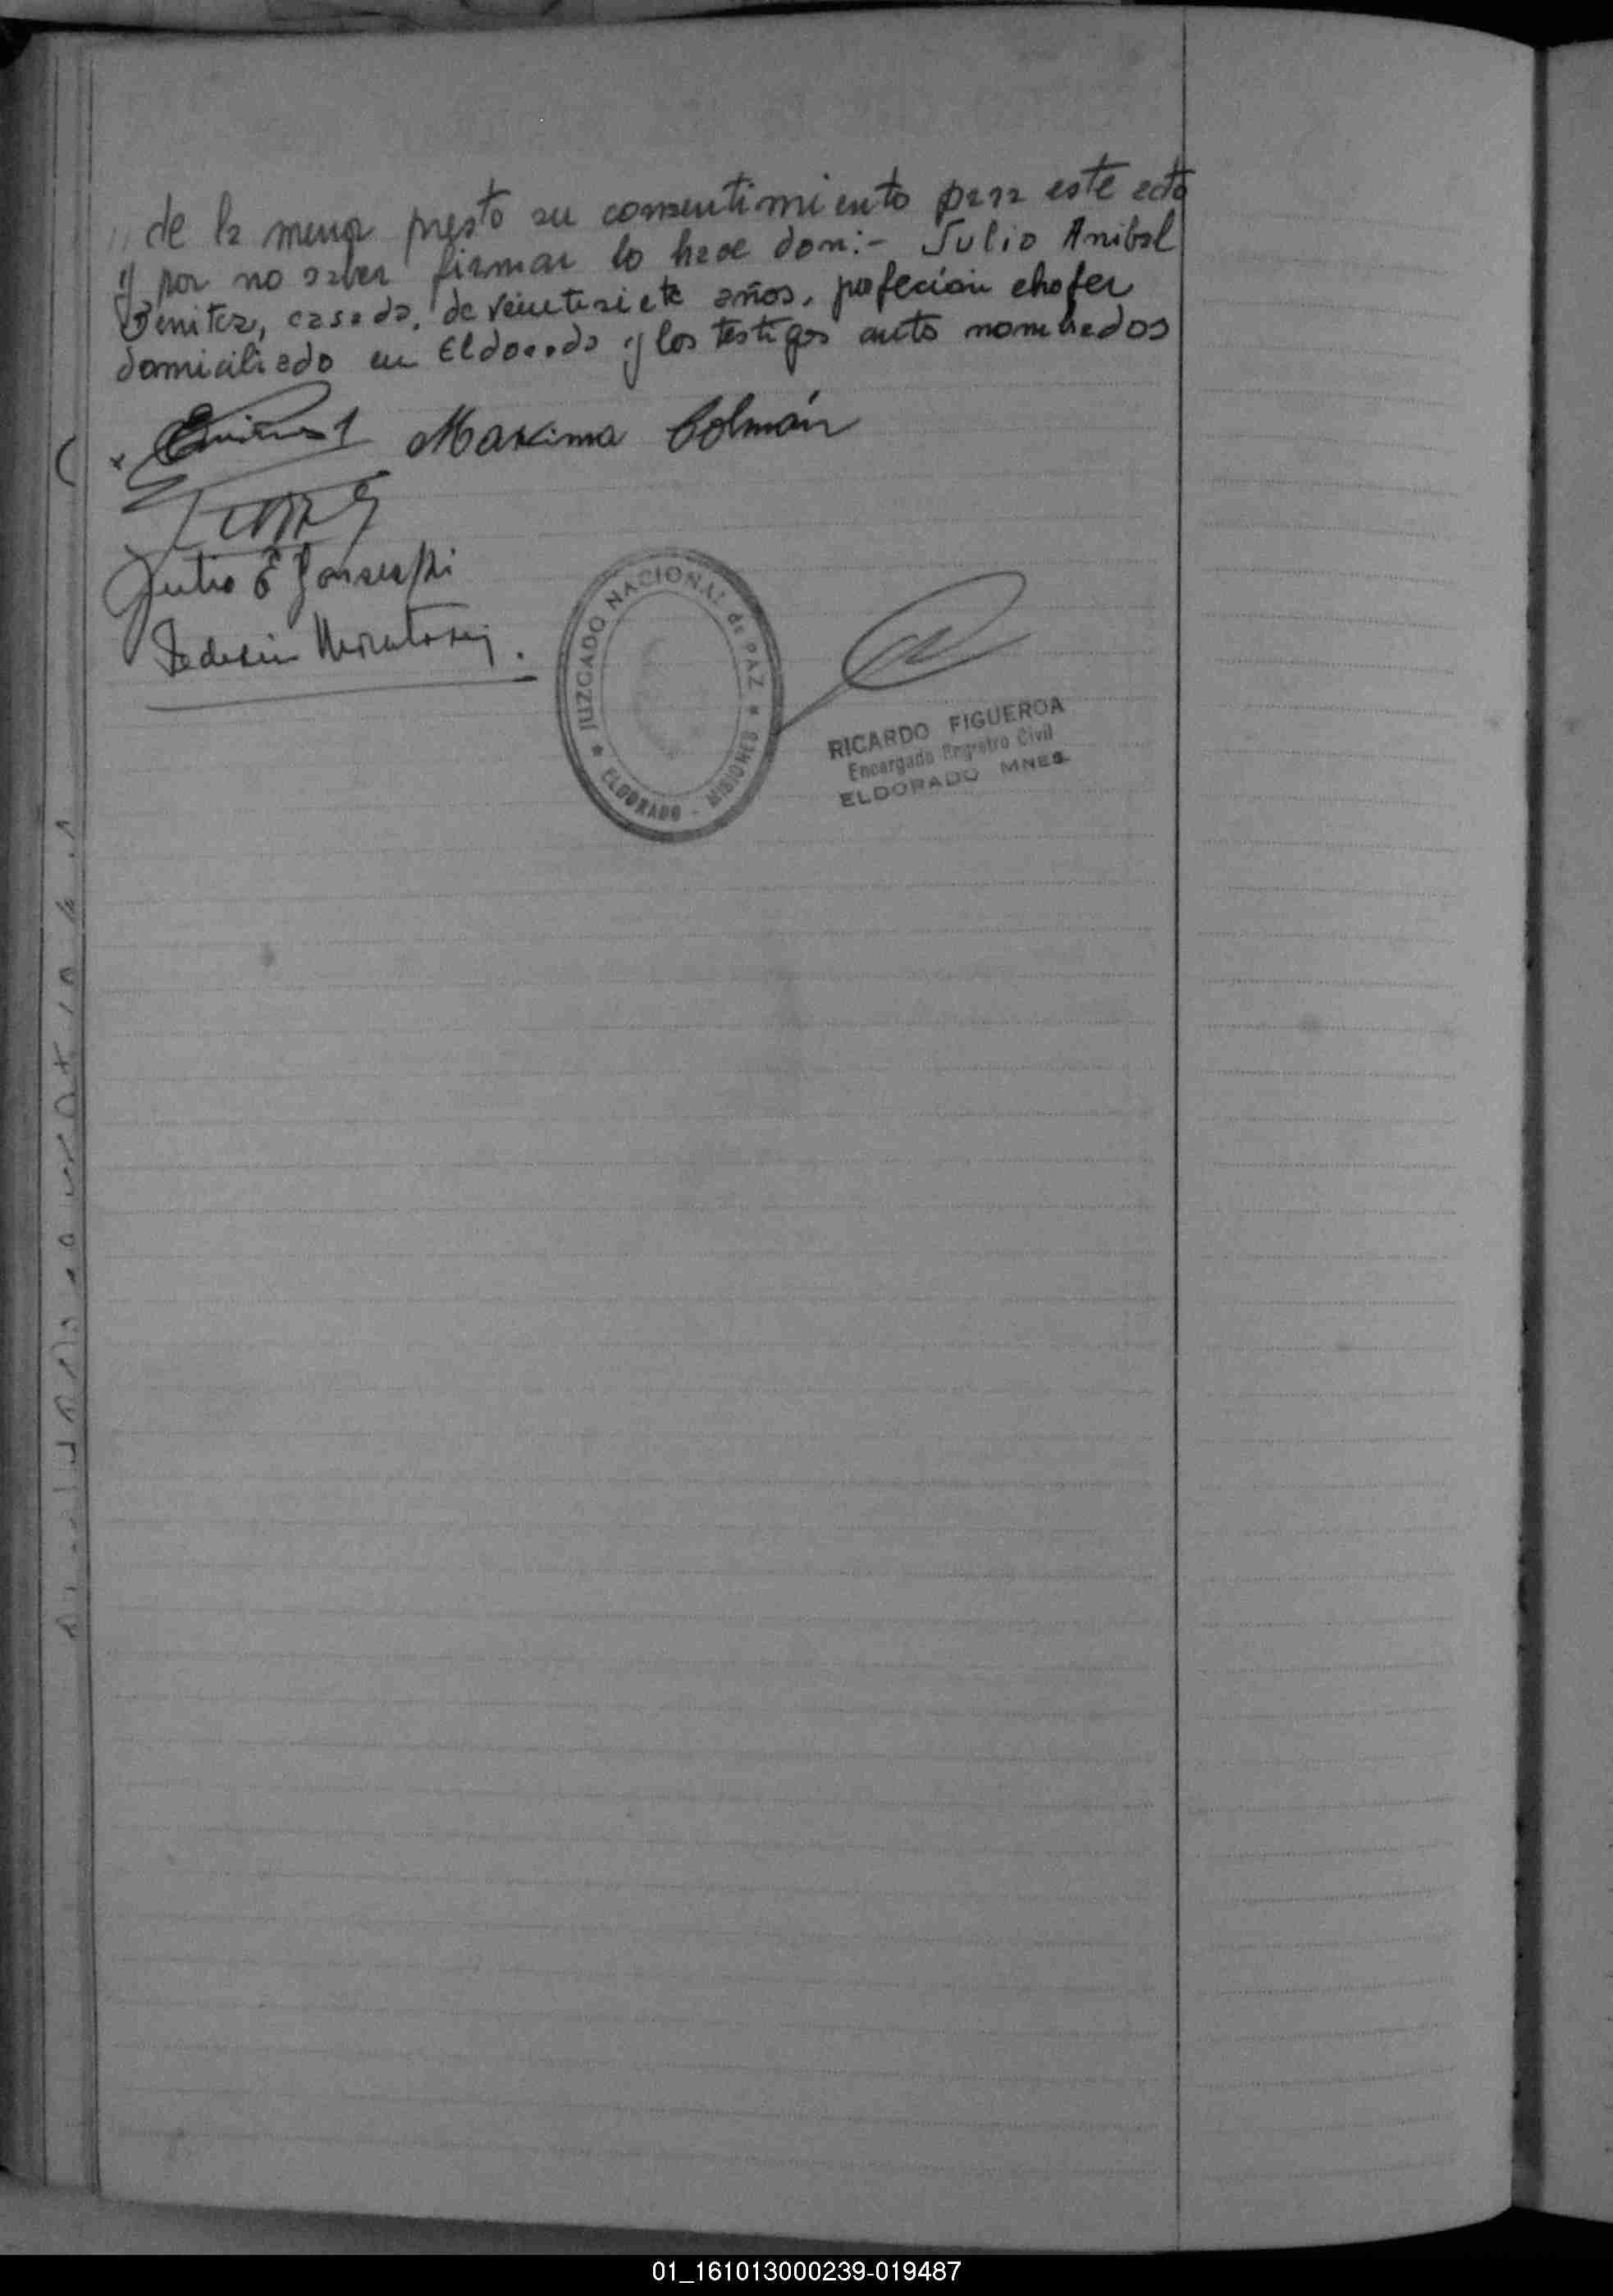 de la menor presto su consentimiento para este acto
y por no saber firmar lo hace don:- Julio Anibal
Benitez, casado, de veintisiete años, profecion chofer
domiciliado en Eldorado y los testigos anto nombrados
Maxima Colmán
Julio E
JUZGADO NACIONAL de PAZ
ELDORADO - MISIONES
RICARDO FIGUEROA
Encargado Registro Civil
ELDORADO MNES.
01_161013000239-019487